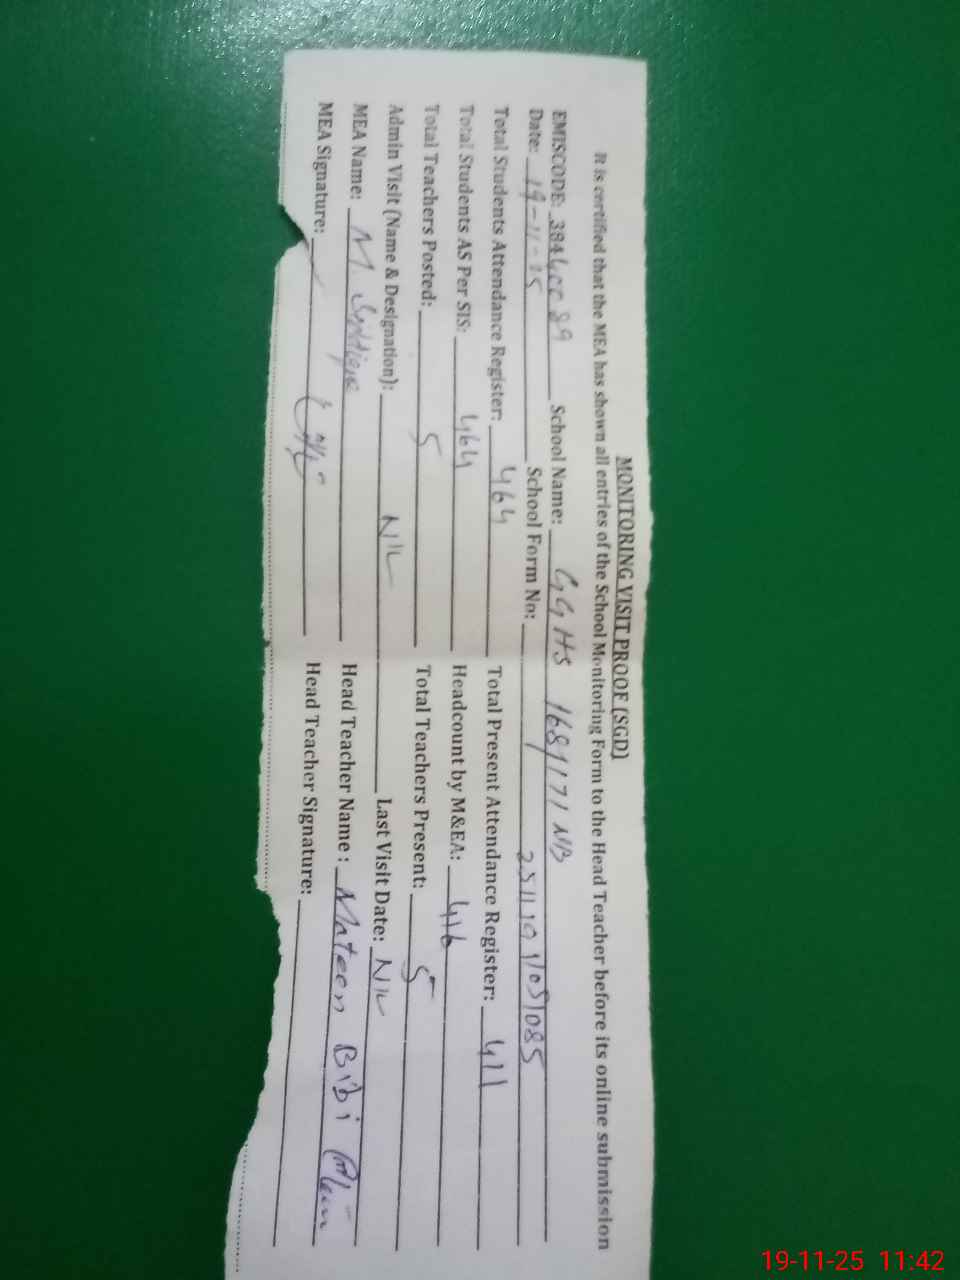 MONITORING VISIT PROOF (SGD)
It is certified that the MEA has shown all entries of the School Monitoring Form to the Head Teacher before its online submission
EMISCODE: School Name: GGHS 168/171 NB
Date: 19-11-25 School Form No:
Total Students Attendance Register: 464 Total Present Attendance Register: 411
Total Students AS Per SIS: 464 Headcount by M&EA: 416
Total Teachers Posted: 5 Total Teachers Present: 5
Admin Visit (Name & Designation): NIL Last Visit Date: NIL
MEA Name: M. Head Teacher Name : Mateen Bibi
MEA Signature: Head Teacher Signature:
19-11-25 11:42